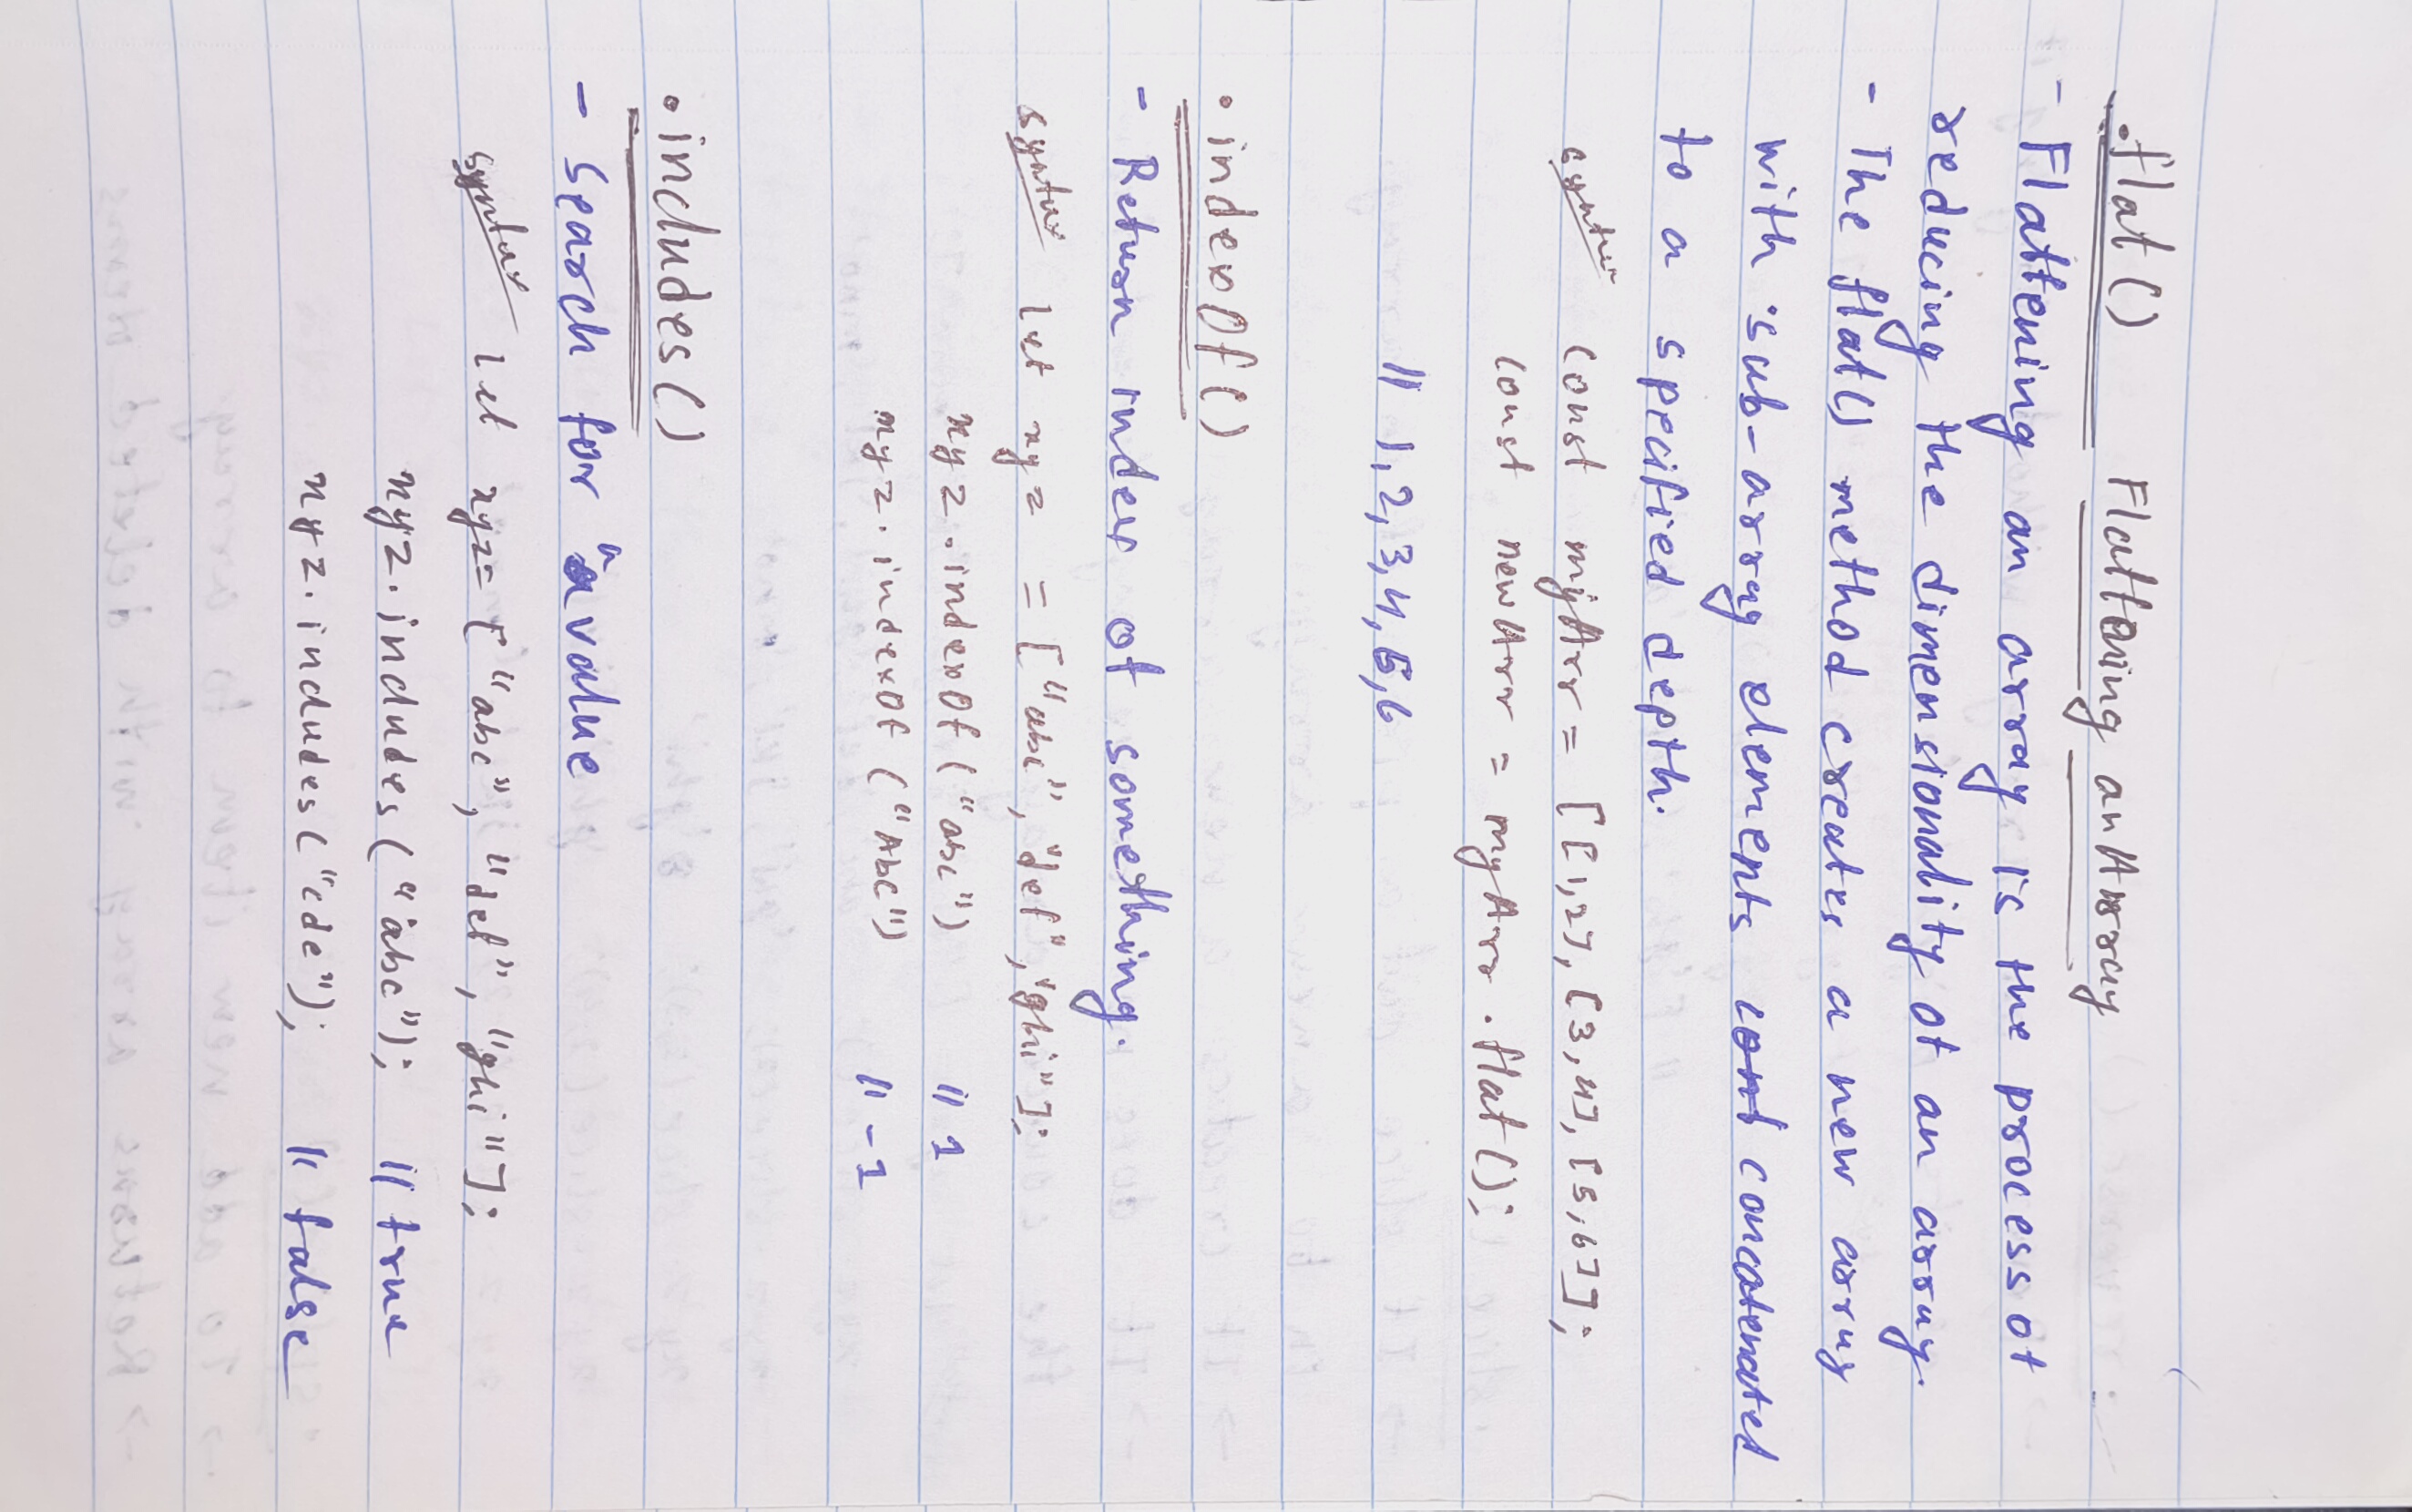 .flat() Flattening an Array
- Flattening an array is the process of
reducing the dimensionality of an array.
- The flat() method creates a new array
with sub-array elements cont concatenated
to a specified depth.
syntax const myArr = [[1,2], [3,4], [5,6]];
const newArr = myArr.flat();
// 1,2,3,4,5,6
.indexOf()
- Return index of something.
syntax let xyz = ["abc", "def", "ghi"];
xyz.indexOf("abc") // 1
xyz.indexOf("Abc") // -1
.includes()
- Search for a value
syntax let xyz= ["abc", "def", "ghi"];
xyz.includes("abc"); // true
xyz.includes("cde"); // false